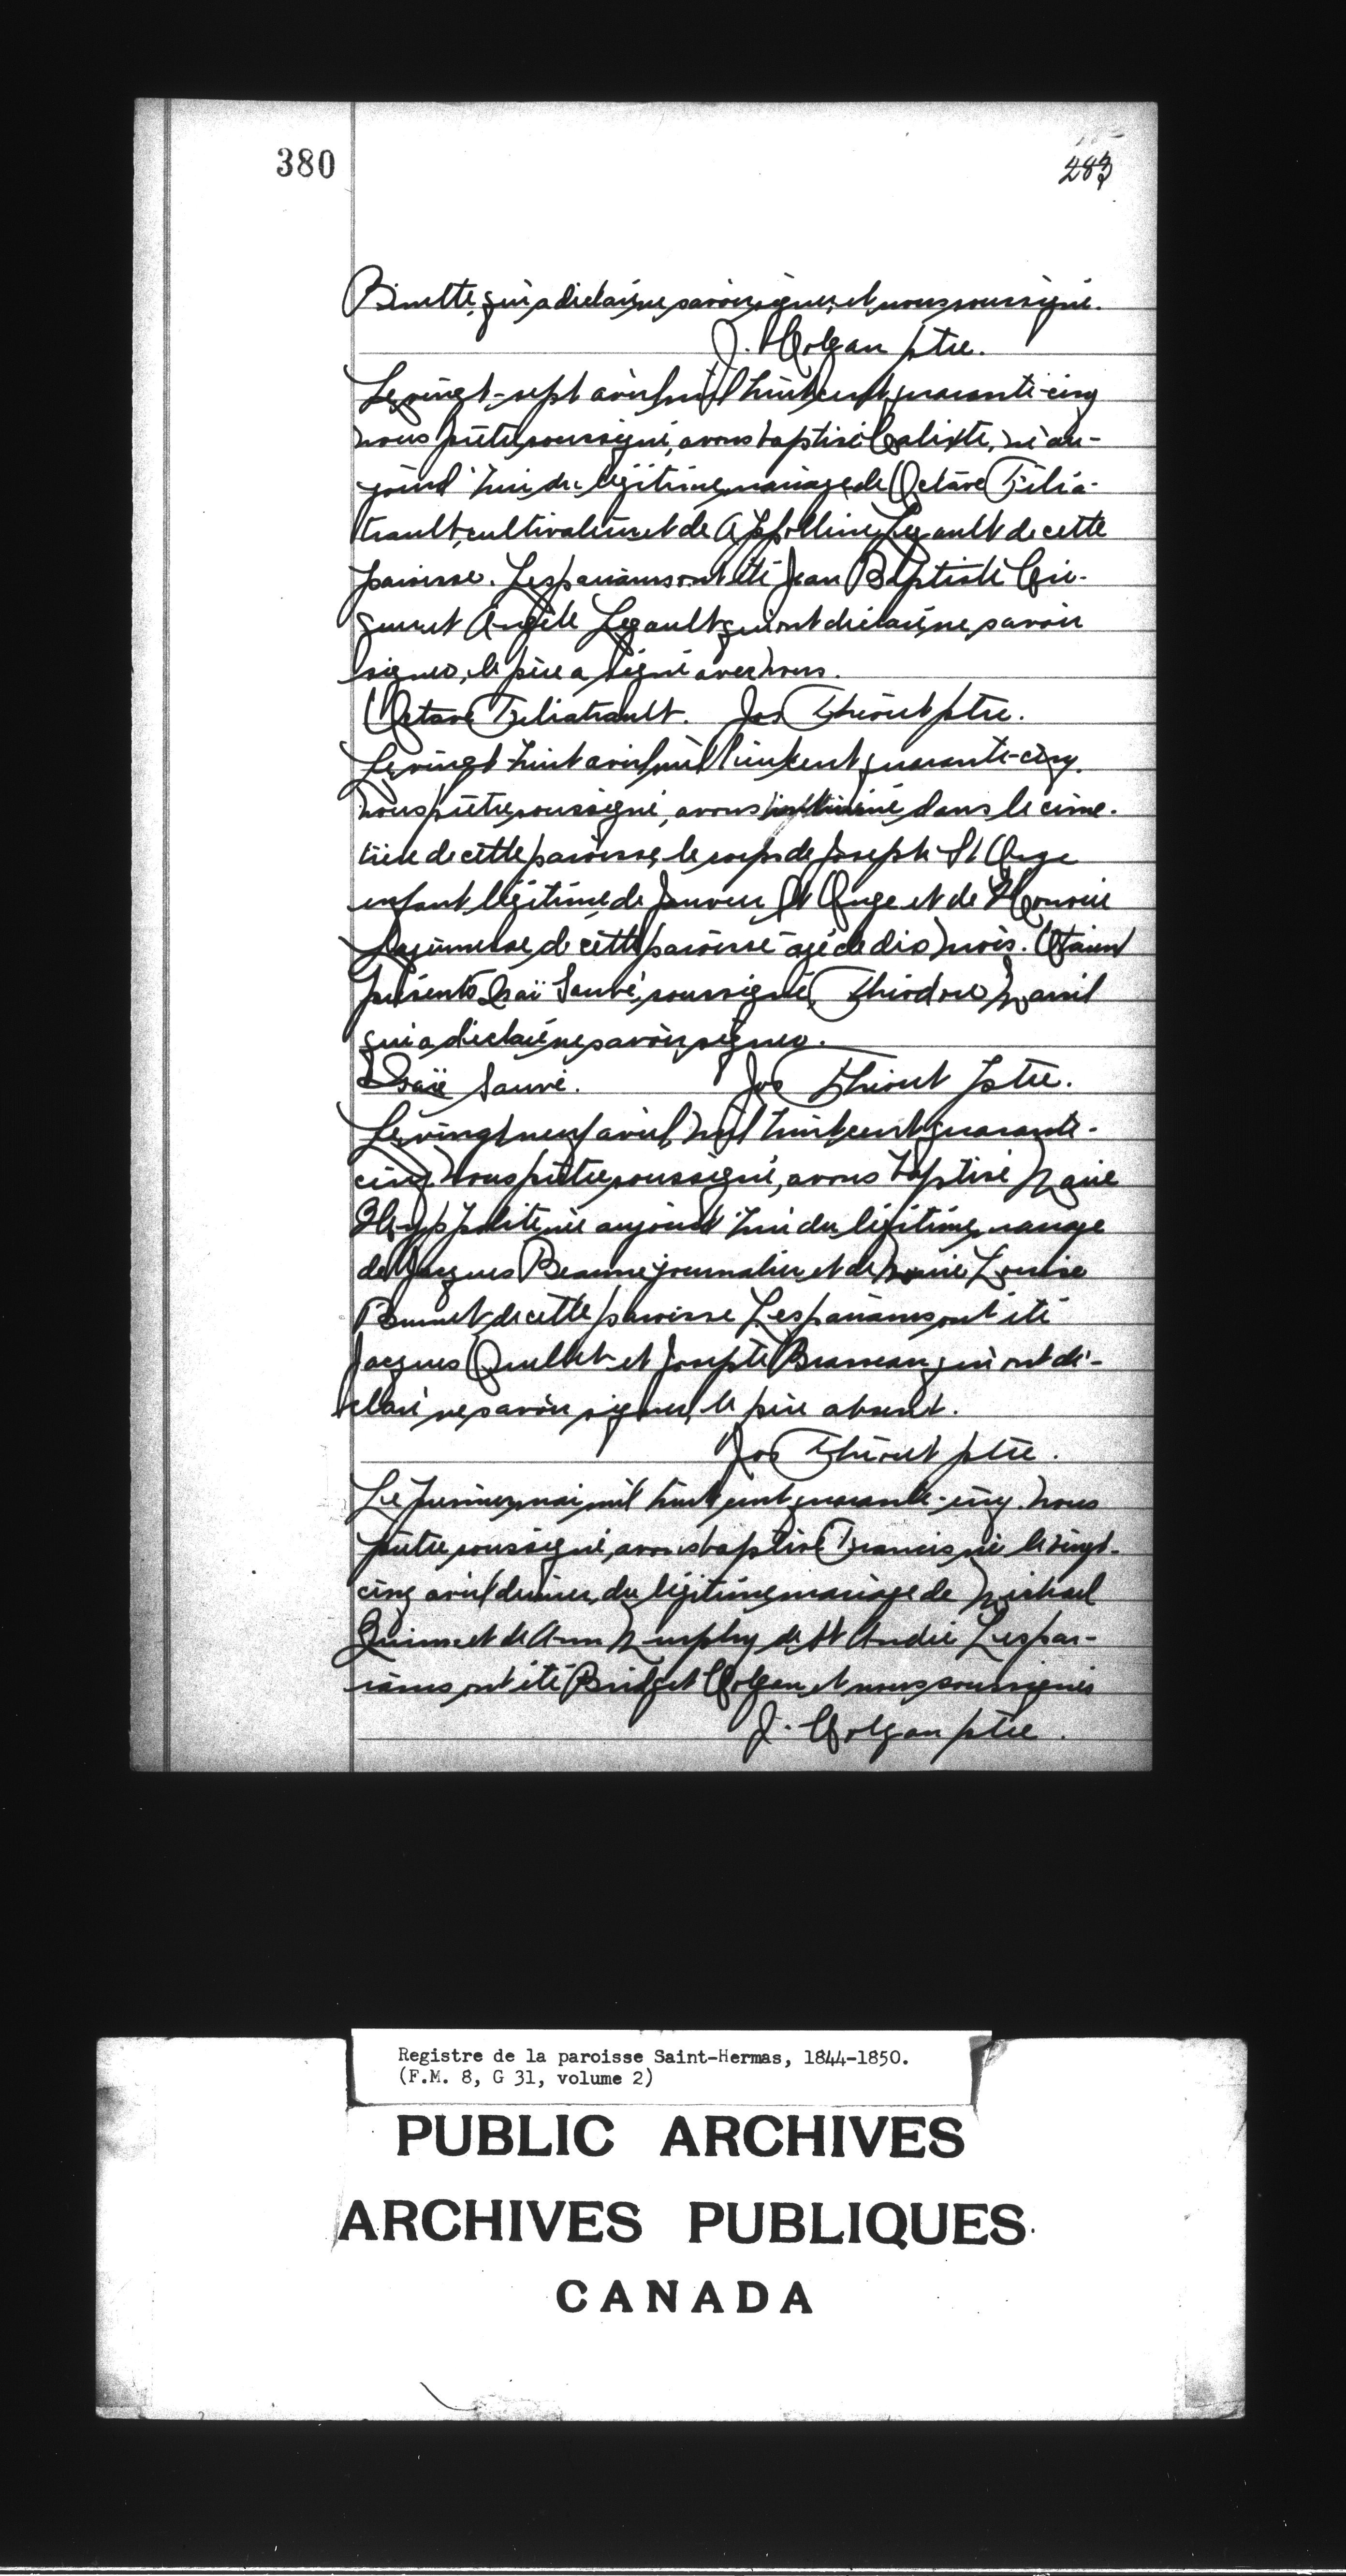 380
283
Binette, qui a déclaré ne savoir signer, et nous soussigné.
J. Colgan ptre.
Le vingt-sept avril mil huit cent quarante-cinq
nous prêtre soussigné, avons baptisé Calixte, né au-
jourd'hui du légitime mariage de Octave Filia-
trault, cultivateur et de Appolline Legault de cette
paroisse. Les parrains ont été Jean Baptiste
et Angèle Legault qui ont déclaré ne savoir
signer, le père a signé avec nous.
Octave Filiatrault. Jos Théorêt ptre.
Le vingt-huit avril mil huit cent quarante-cinq.
nous prêtre soussigné, avons inhumé dans le cime-
tière de cette paroisse, le corps de Joseph St Onge
enfant légitime de Janvier St Onge et de
Lajeunesse de cette paroisse âgé de dix mois. Étaient
présents Isaï Sauvé, soussigné, Théodore
qui a déclaré ne savoir signer.
Isaïe Sauvé. Jos Théorêt Ptre.
Le vingt neuf avril, mil huit cent quarante-
cinq nous prêtre soussigné, avons baptisé Marie
Hyppolite née aujourd'hui du légitime mariage
de Jacques Beaune journalier et de Marie Louise
Brunet de cette paroisse Les parrains ont été
Jacques Ouellet et Josephte Brasseau qui ont dé-
claré ne savoir signer, le père absent.
Jos Théorêt ptre.
Le premier mai mil huit cent quarante-cinq. nous
prêtre soussigné, avons baptisé Francis né le vingt-
cinq avril dernier, du légitime mariage de Michael
Quinn et de Ann Murphy de St André Les par-
rains ont été Bridget Colgan et nous soussignés
J. Colgan ptre.
Registre de la paroisse Saint-Hermas, 1844-1850.
(F.M. 8, G 31, volume 2)
PUBLIC ARCHIVES
ARCHIVES PUBLIQUES
CANADA